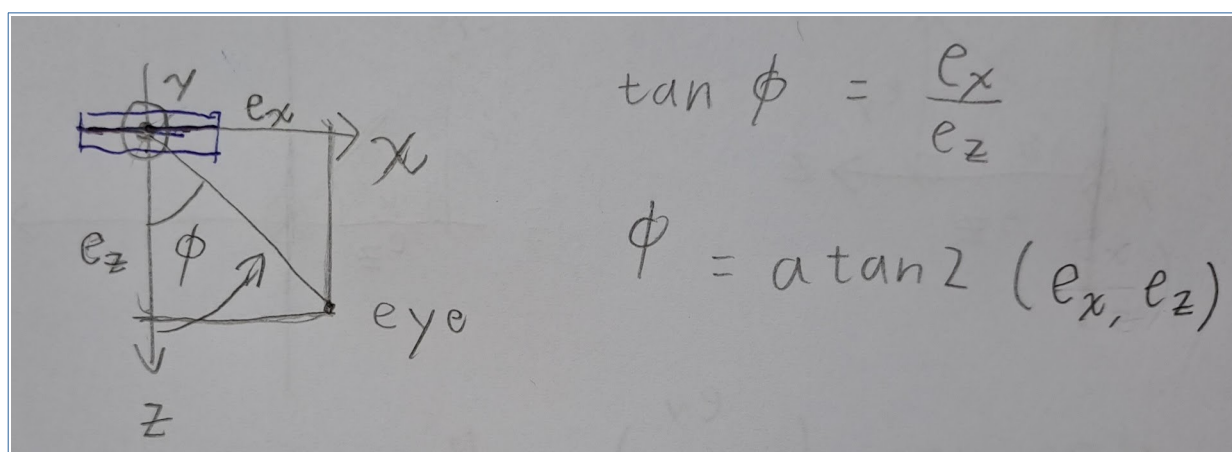 Y
e_x
X
e_z
φ
eye
Z
tan φ = e_x / e_z
φ = atan2 (e_x, e_z)